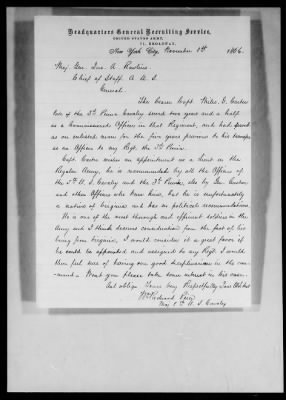 Headquarters General Recruiting Service,
UNITED STATES ARMY,
BROADWAY,
New York City, November 1st 1866.
Maj. Gen. Jno. A. Rawlins
Chief of Staff A. A. S.
General.
The bearer Capt. Miles G. Carter
of the 3d Penna Cavalry served two years and a half
as a Commissioned Officer in that Regiment, and had served
as an enlisted man for the five years previous to his transfer
as an Officer to my Regt. the 3d Penna.
Capt. Carter wishes an appointment as a Lieut in the
Regular Army, he is recommended by all the Officers of
the 5th U. S. Cavalry and the 3d Penna, also by Gen.
and other Officers who know him, but he is unfortunately
a native of Virginia and has no political recommendations.
He is one of the most thorough and efficient soldiers in the
Army and I think deserves consideration from the fact of his
being from Virginia, I would consider it a great favor if
he could be appointed and assigned to my Regt. I would
then feel sure of having one good disciplinarian in the com-
-mand. Wont you please take some interest in his case.
and oblige Yours very Respectfully Your Obt Svt
Maj 5th U. S. Cavalry